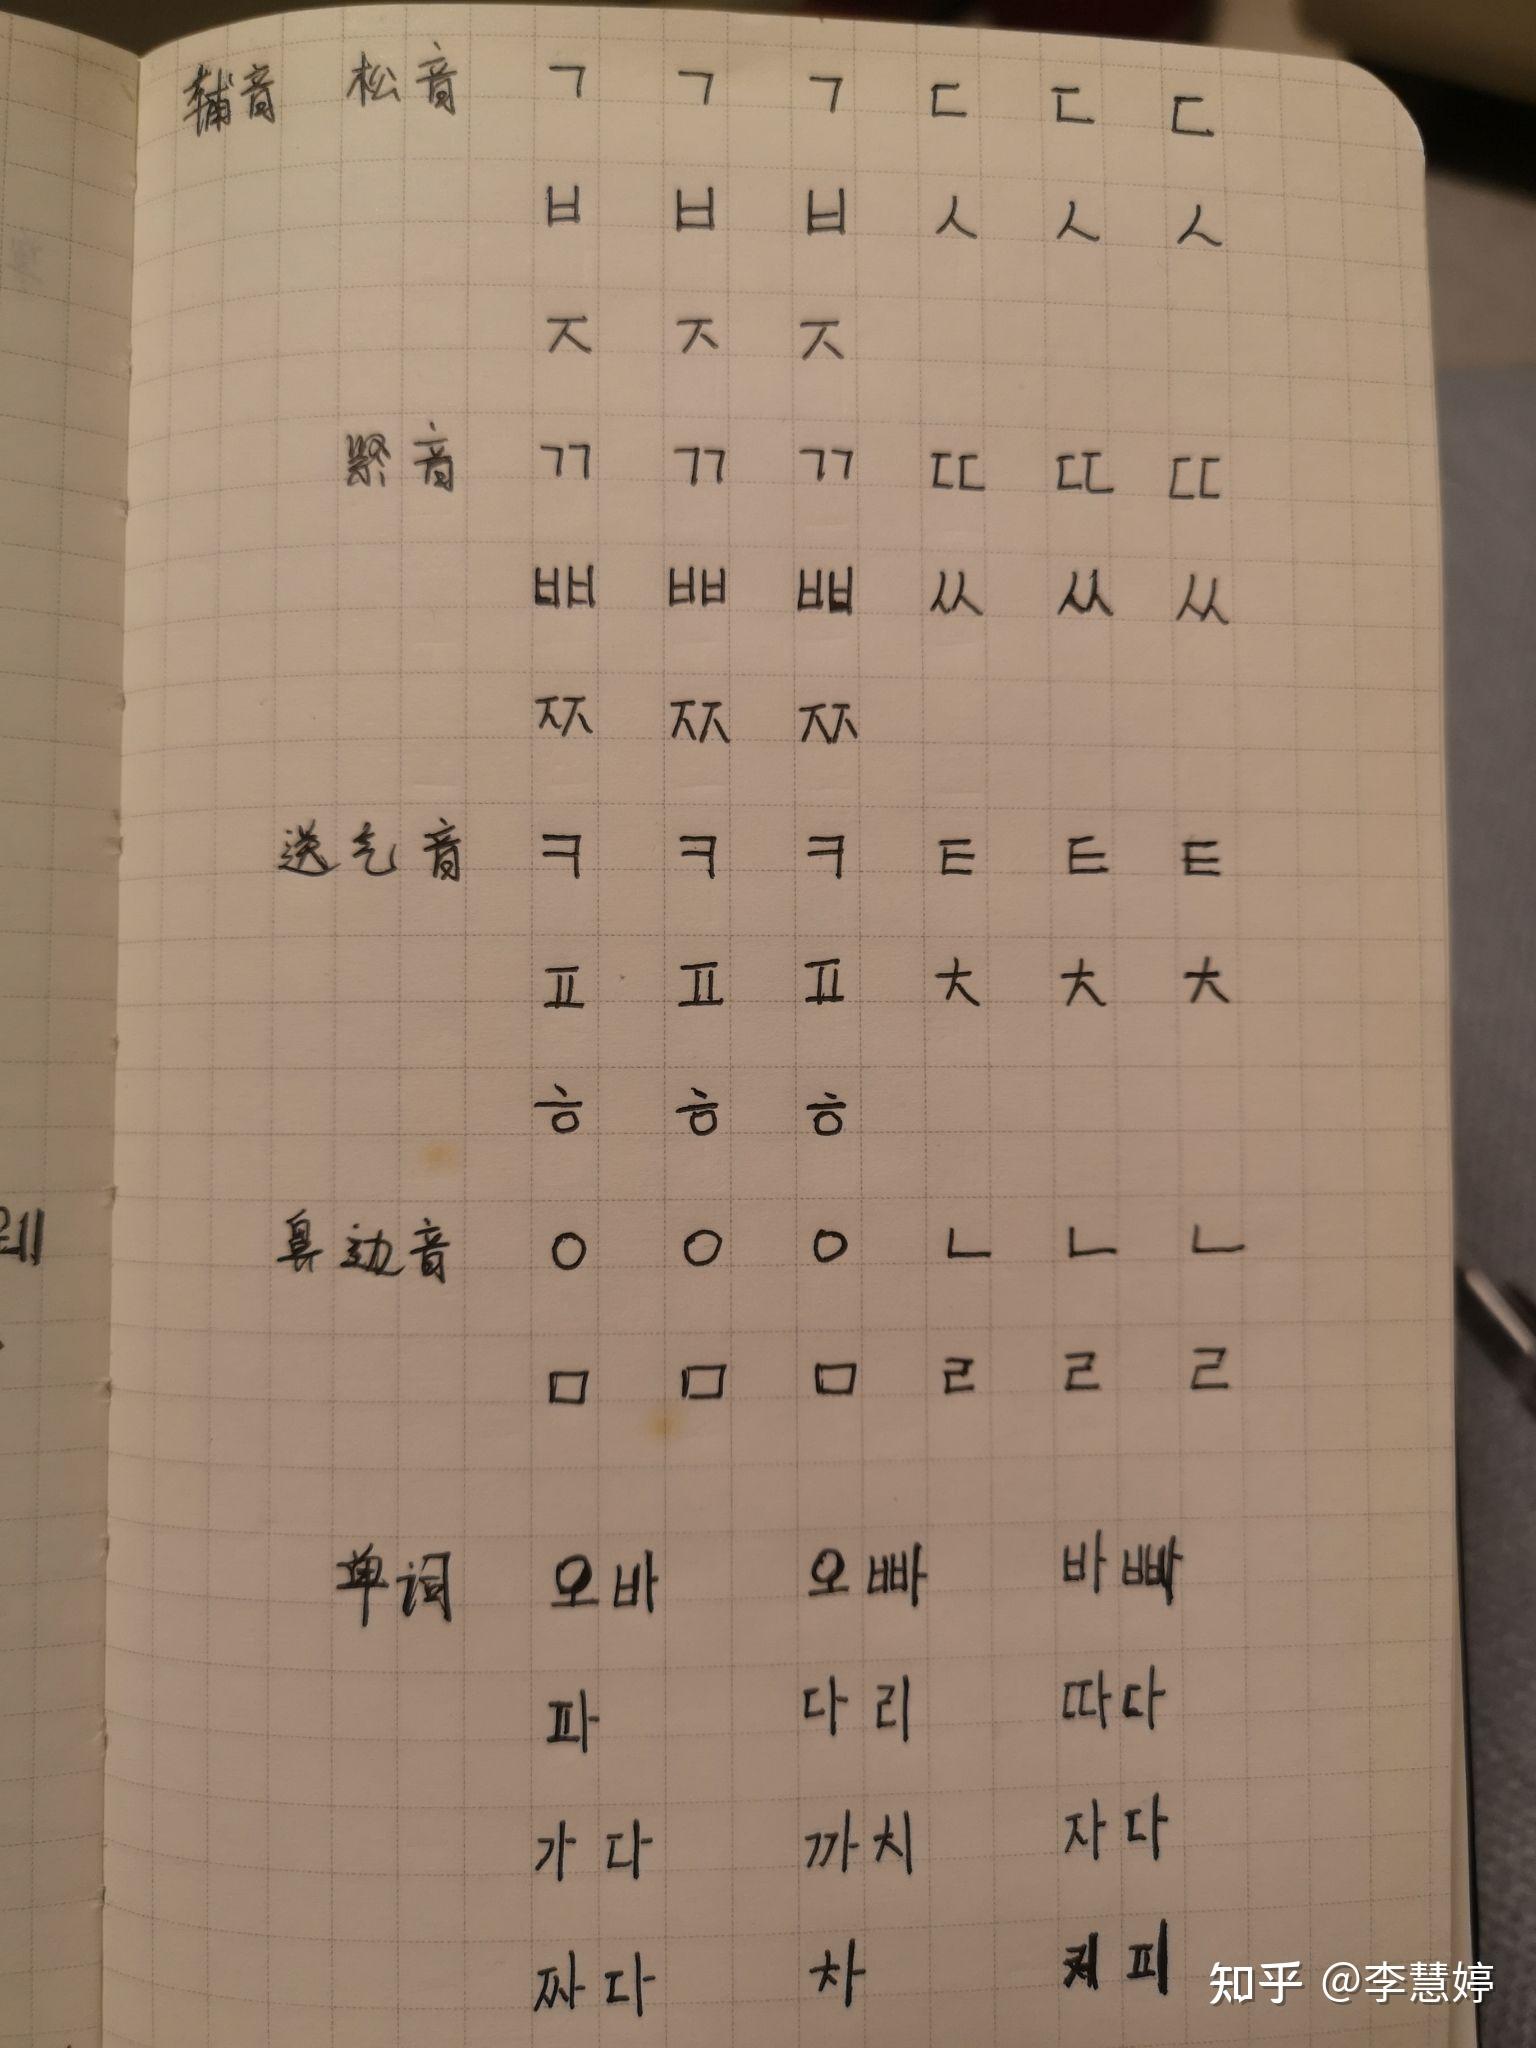 辅音 松音 ㄱ ㄱ ㄱ ㄷ ㄷ ㄷ
ㅂ ㅂ ㅂ ㅅ ㅅ ㅅ
ㅈ ㅈ ㅈ
紧音 ㄲ ㄲ ㄲ ㄸ ㄸ ㄸ
ㅃ ㅃ ㅃ ㅆ ㅆ ㅆ
ㅉ ㅉ ㅉ
送气音 ㅋ ㅋ ㅋ ㅌ ㅌ ㅌ
ㅍ ㅍ ㅍ ㅊ ㅊ ㅊ
ㅎ ㅎ ㅎ
鼻边音 ㅇ ㅇ ㅇ ㄴ ㄴ ㄴ
ㅁ ㅁ ㅁ ㄹ ㄹ ㄹ
单词 오바 오빠 바빠
파 다리 따다
가다 까치 자다
짜다 차 피
知乎 @李慧婷